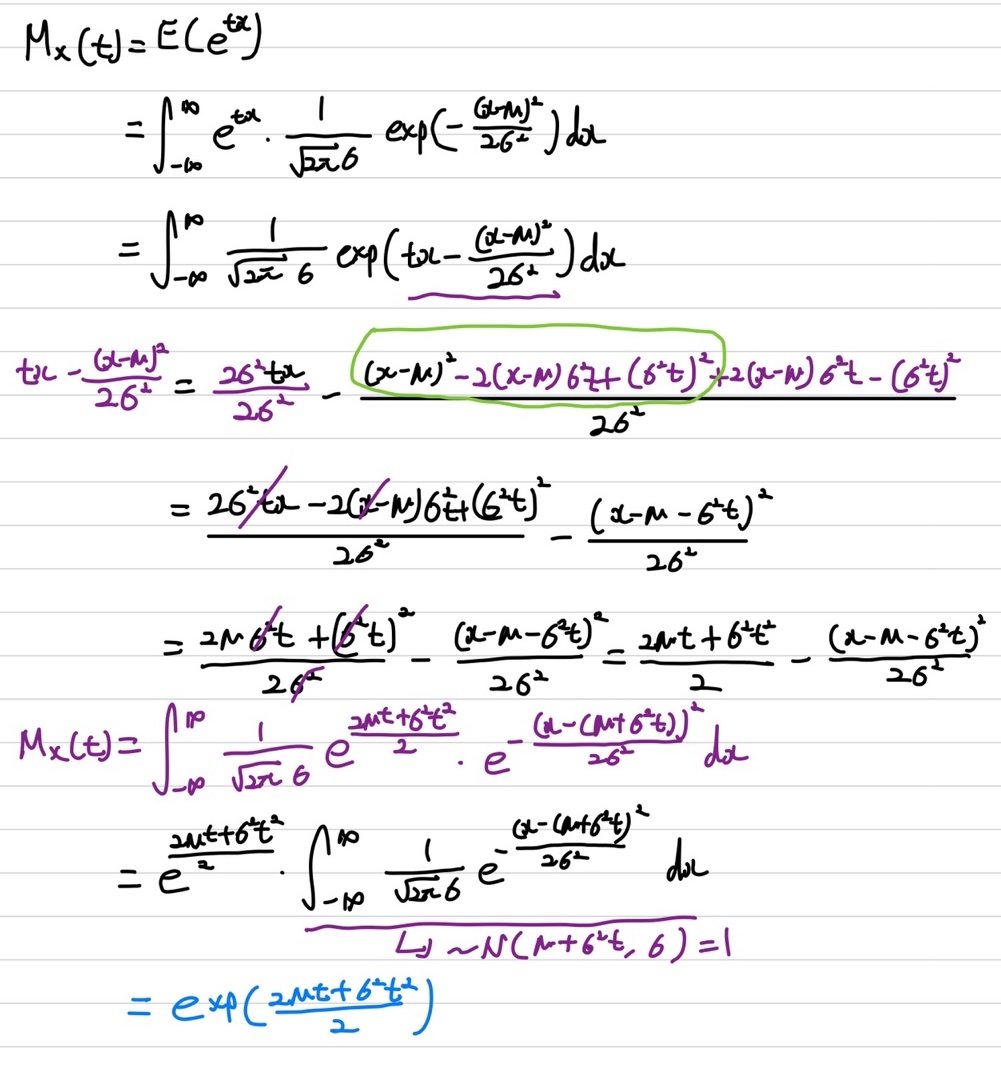 Mₓ(t) = E(e^{tx})
= ∫_{-∞}^{∞} e^{tx} · \frac{1}{\sqrt{2π}σ} exp(-\frac{(x-μ)^2}{2σ^2}) dx
= ∫_{-∞}^{∞} \frac{1}{\sqrt{2π}σ} exp(tx - \frac{(x-μ)^2}{2σ^2}) dx
tx - \frac{(x-μ)^2}{2σ^2} = \frac{2σ^2tx}{2σ^2} - \frac{(x-μ)^2 - 2(x-μ)σ^2t + (σ^2t)^2 + 2(x-μ)σ^2t - (σ^2t)^2}{2σ^2}
= \frac{2σ^2tx - 2(x-μ)σ^2t + (σ^2t)^2}{2σ^2} - \frac{(x-μ-σ^2t)^2}{2σ^2}
= \frac{2μσ^2t + (σ^2t)^2}{2σ^2} - \frac{(x-μ-σ^2t)^2}{2σ^2} = \frac{2μt + σ^2t^2}{2} - \frac{(x-μ-σ^2t)^2}{2σ^2}
Mₓ(t) = ∫_{-∞}^{∞} \frac{1}{\sqrt{2π}σ} e^{\frac{2μt+σ^2t^2}{2}} · e^{-\frac{(x-(μ+σ^2t))^2}{2σ^2}} dx
= e^{\frac{2μt+σ^2t^2}{2}} · ∫_{-∞}^{∞} \frac{1}{\sqrt{2π}σ} e^{-\frac{(x-(μ+σ^2t)^2}{2σ^2}} dx
↳ ~N(μ+σ^2t, σ) = 1
= exp(\frac{2μt+σ^2t^2}{2})